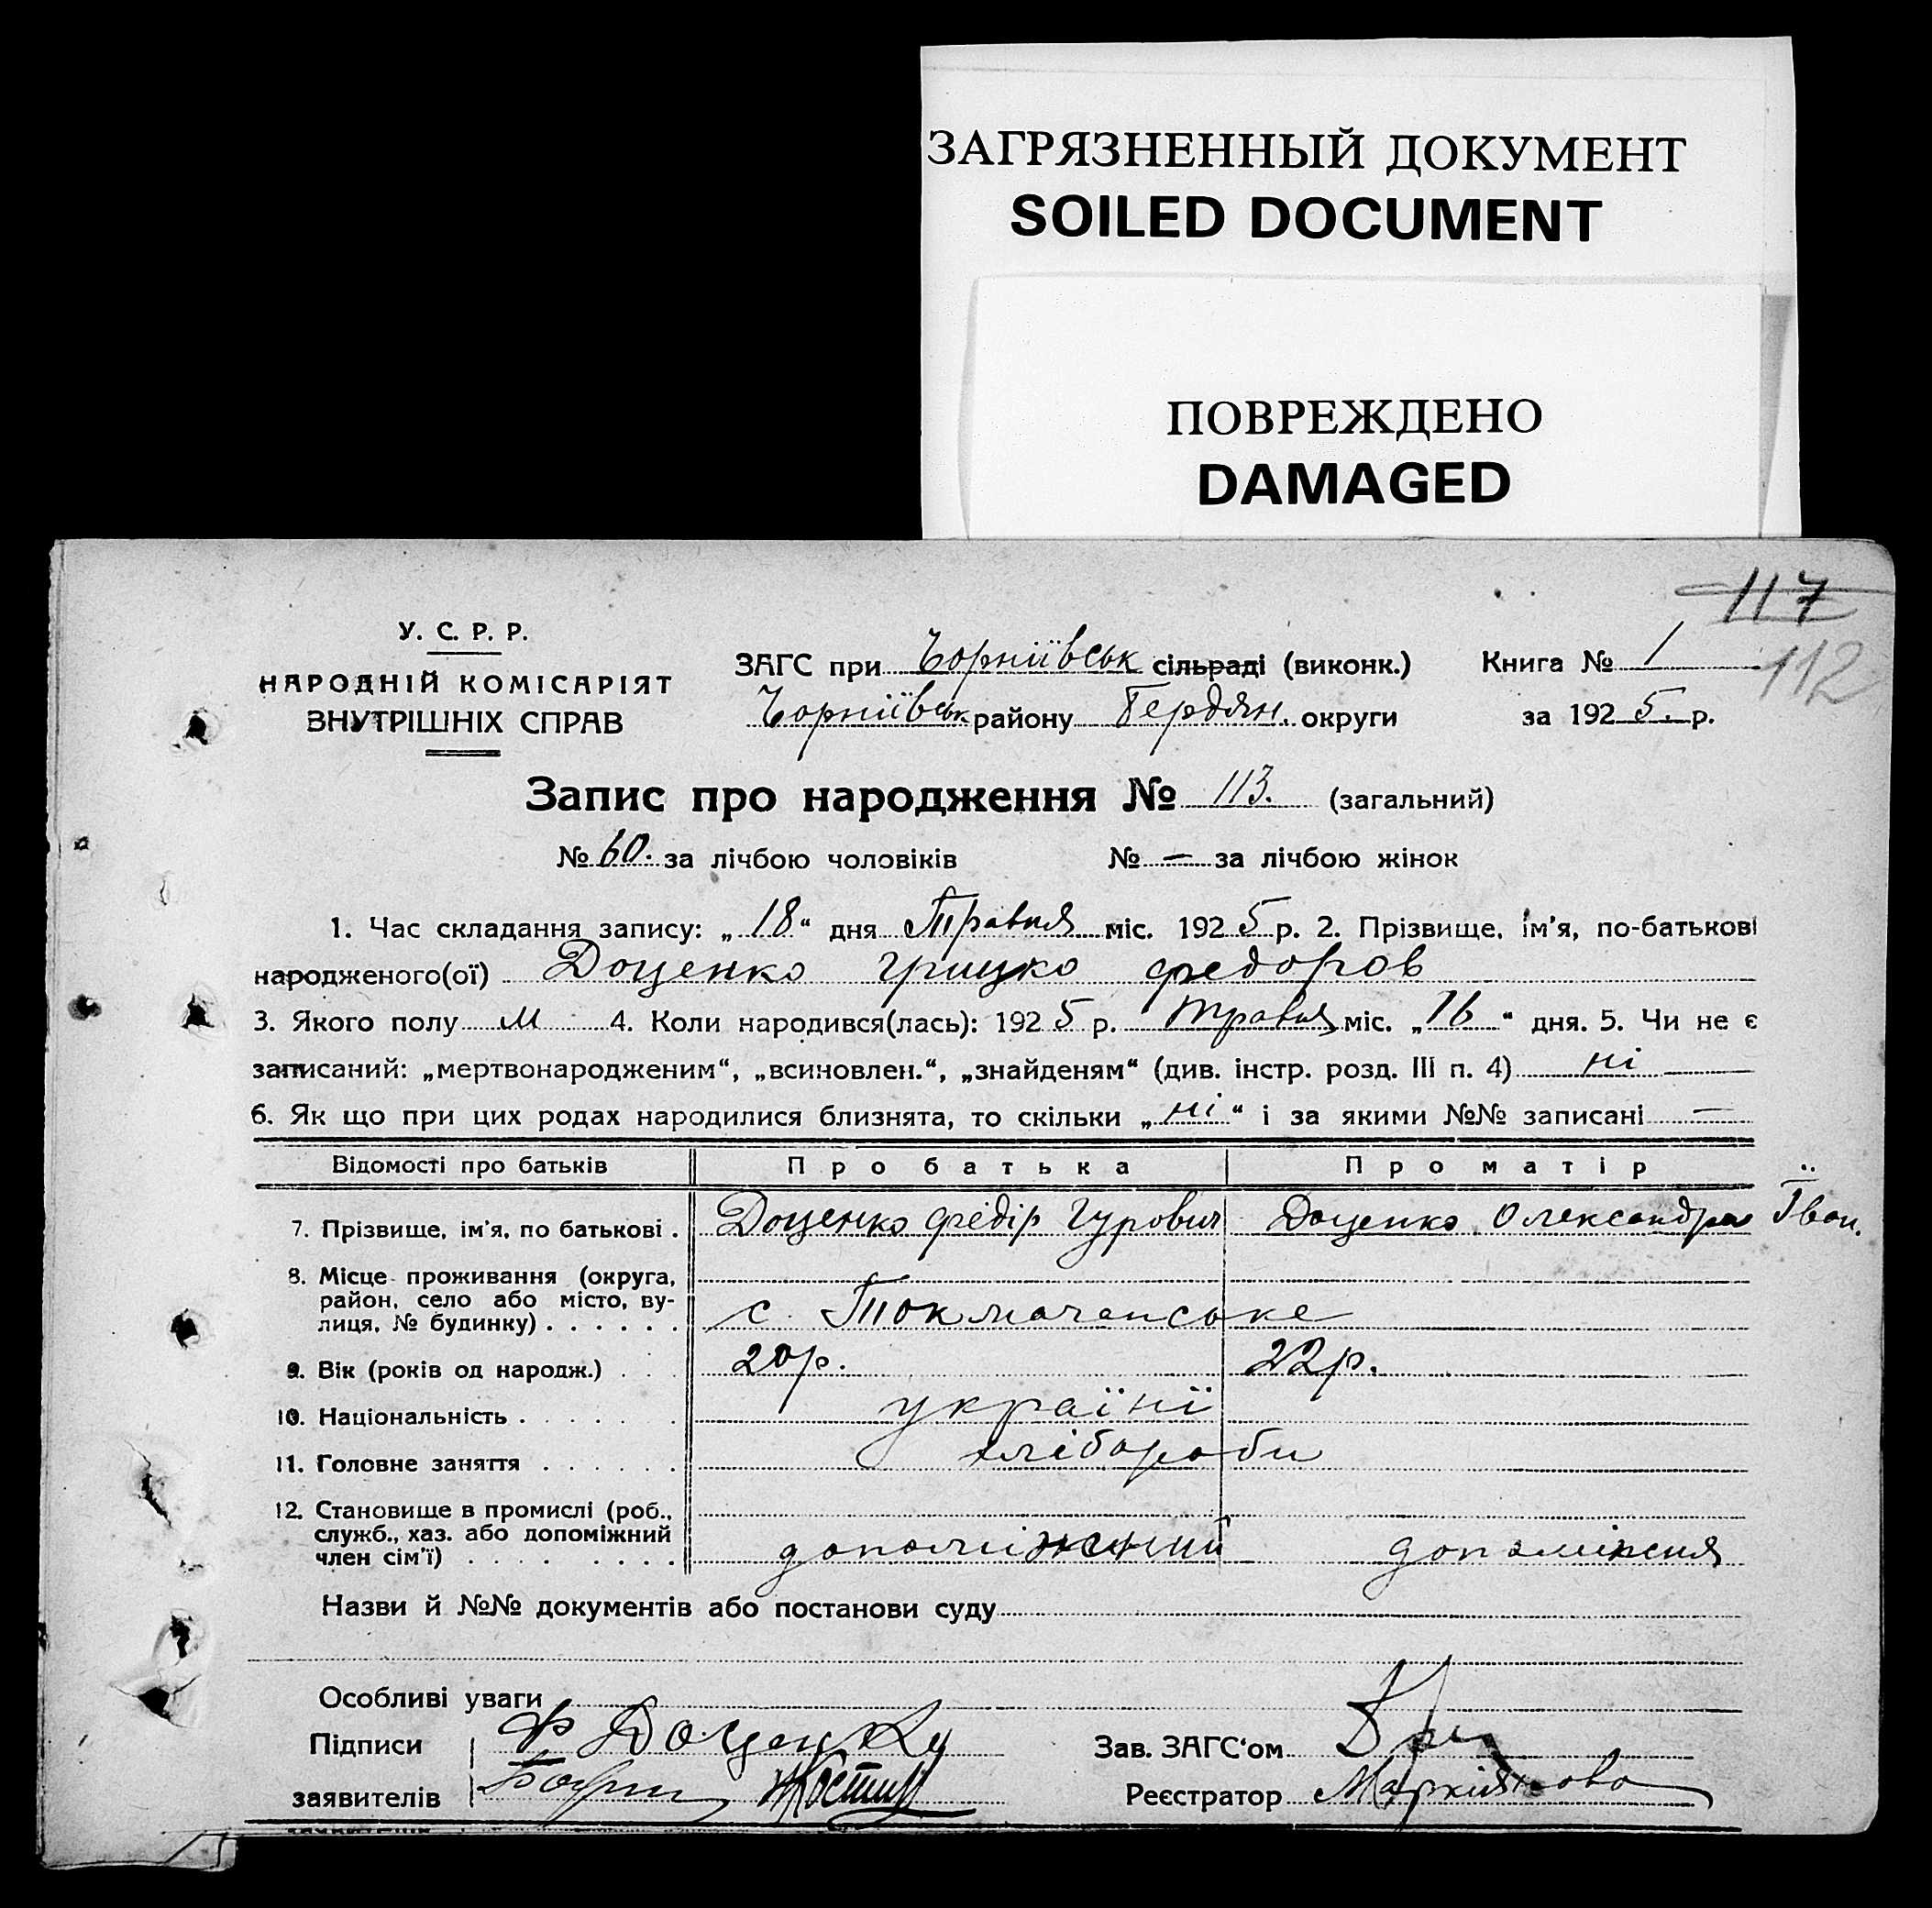 ЗАГРЯЗНЕННЫЙ ДОКУМЕНТ
SOILED DOCUMENT
ПОВРЕЖДЕНО
DAMAGED
117
112
У. С. Р. Р.
НАРОДНІЙ КОМІСАРІЯТ
ВНУТРІШНІХ СПРАВ
ЗАГС при Чорніївськ сільраді (виконк.) Книга № 1
Чорніївськ. району Бердян. округи за 1925. р.
Запис про народження № 113. (загальний)
№ 60. за лічбою чоловіків № — за лічбою жінок
1. Час складання запису: „18“ дня Травня міс. 1925 р. 2. Прізвище, ім'я, по-батькові
народженого(ої) Доценко Грицко Федоров
3. Якого полу м 4. Коли народився(лась): 1925 р. травня міс. „16“ дня. 5. Чи не є
записаний: „мертвонародженим“, „всиновлен.“, „знайденям“ (див. інстр. розд. III п. 4) ні
6. Як що при цих родах народилися близнята, то скільки „ні“ і за якими №№ записані —
Відомості про батьків Про батька Про матір
7. Прізвище, ім'я, по батькові . Доценко Федір Гурович Доценко Олександра Іван.
8. Місце проживання (округа,
район, село або місто, ву-
лиця, № будинку) . . . . . . с. Токмачанське
9. Вік (років од народж.) . . . 20р. 22р.
10. Національність . . . . . . . україні
11. Головне заняття . . . . . . хлібороби
12. Становище в промислі (роб.,
служб., хаз. або допоміжний
член сім'ї) . . . . . . . . . допоміжний допоміжня
Назви й №№ документів або постанови суду
Особливі уваги
Підписи Ф Доценко Зав. ЗАГС'ом
заявителів Костил Реєстратор Маркіянова